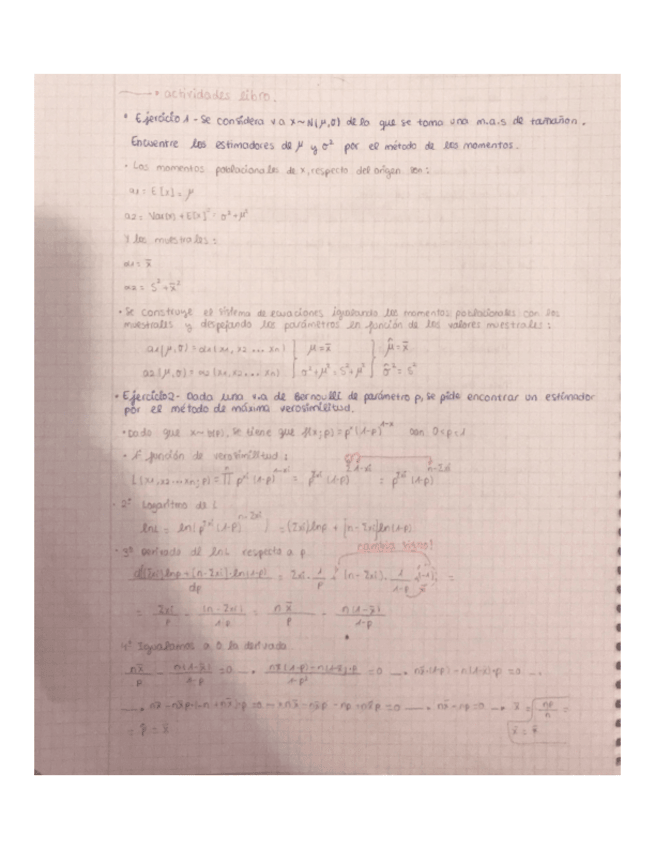 → • actividades libro.
• Ejercicio 1 - Se considera v.a x~N(μ,σ) de la que se toma una m.a.s de tamaño n.
Encuentre los estimadores de μ y σ² por el método de los momentos.
• Los momentos poblacionales de x, respecto del origen son:
a1 = E[x] = μ
a2 = Var(x) + E[x]² = σ²+μ²
Y los muestrales:
m1 = x̄
m2 = S²+x̄²
• Se construye el sistema de ecuaciones igualando los momentos poblacionales con los
muestrales y despejando los parámetros en función de los valores muestrales:
a1(μ,σ) = a1(x1, x2 ... xn) } μ = x̄ } μ̂ = x̄
a2(μ,σ) = a2(x1, x2 ... xn) } σ²+μ² = S²+μ² } σ̂² = S²
• Ejercicio 2 - Dada una v.a de Bernoulli de parámetro p, se pide encontrar un estimador
por el método de máxima verosimilitud.
• Dado que x~b(p), se tiene que f(x;p) = pˣ(1-p)¹⁻ˣ con 0<p<1
• 1º función de verosimilitud:
L(x1,x2...xn;p) = ∏ p^xi (1-p)^1-xi = p^Σxi (1-p)^Σ1-xi = p^Σxi (1-p)^n-Σxi
• 2º Logaritmo de L
lnL = ln(p^Σxi (1-p)^n-Σxi) = (Σxi)lnp + (n-Σxi)ln(1-p)
• 3º Derivada de lnL respecto a p
cambia signo!
d(Σxi)lnp + (n-Σxi)·ln(1-p) / dp = Σxi · 1/p + (n-Σxi) · 1/1-p (-1) =
= Σxi/p - (n-Σxi)/1-p = nx̄/p - n(1-x̄)/1-p
4º Igualamos a 0 la derivada
nx̄/p - n(1-x̄)/1-p = 0 → nx̄(1-p)-n(1-x̄)·p / 1-p² = 0 → nx̄(1-p)-n(1-x̄)·p = 0 →
→ nx̄-nx̄p-(n+nx̄)·p = 0 → nx̄-nx̄p-np+nx̄p = 0 → nx̄-np = 0 → x̄ = np/n =
= p̂ = x̄